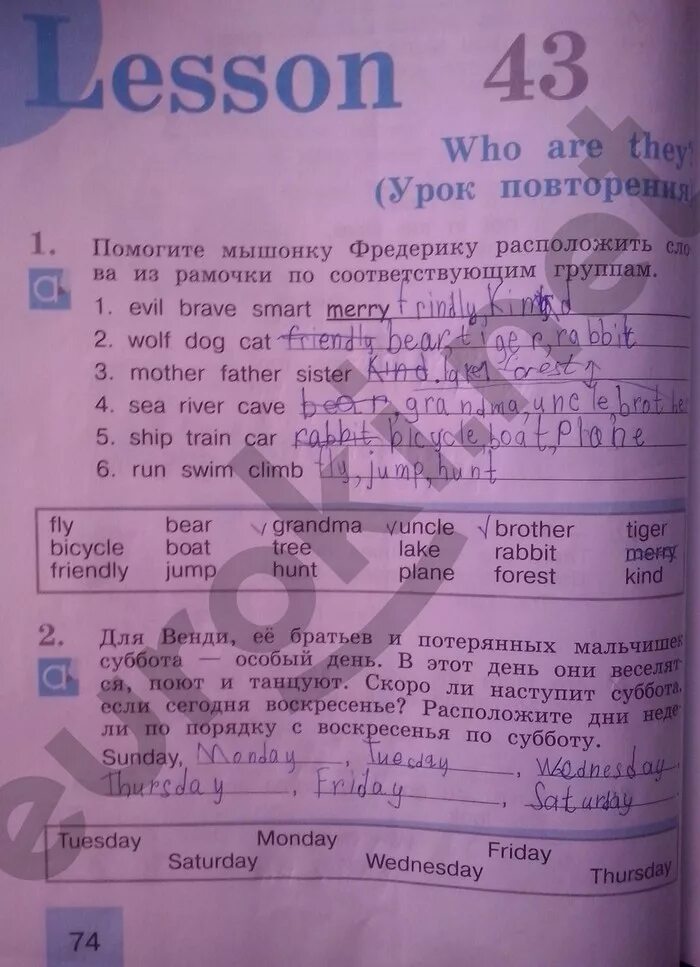 Lesson 43
Who are they?
(Урок повторения)
1. Помогите мышонку Фредерику расположить сло
ва из рамочки по соответствующим группам.
a
1. evil brave smart merry frindly, Kind
2. wolf dog cat friendly bear, tiger, rabbit
3. mother father sister Kind. forest
4. sea river cave bear, grandma, uncle, brother
5. ship train car rabbit bicycle, boat, plane
6. run swim climb fly, jump, hunt
fly bear grandma uncle brother tiger
bicycle boat tree lake rabbit merry
friendly jump hunt plane forest kind
2. Для Венди, её братьев и потерянных мальчишек
a
суббота — особый день. В этот день они веселят-
ся, поют и танцуют. Скоро ли наступит суббота,
если сегодня воскресенье? Расположите дни неде-
ли по порядку с воскресенья по субботу.
Sunday, Monday, Tuesday, Wednesday
Thursday, Friday, Saturday
Tuesday Monday Friday
Saturday Wednesday Thursday
74
euroki.net